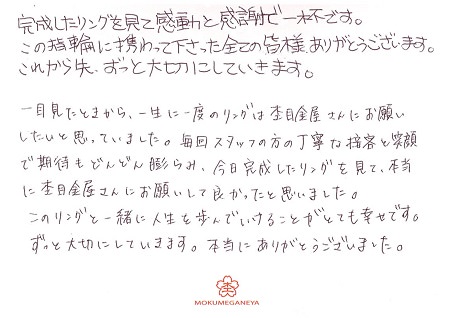 完成したリングを見て感動と感謝で一杯です。
この指輪に携わって下さった全ての皆様ありがとうございます。
これから先、ずっと大切にしていきます。
一目見たときから、一生に一度のリングは杢目金屋さんにお願い
したいと思っていました。毎回スタッフの方の丁寧な接客と笑顔
で期待もどんどん膨らみ、今日完成したリングを見て、本当
に杢目金屋さんにお願いして良かったと思いました。
このリングと一緒に人生を歩んでいけることがとても幸せです。
ずっと大切にしていきます。本当にありがとうございました。
MOKUMEGANEYA